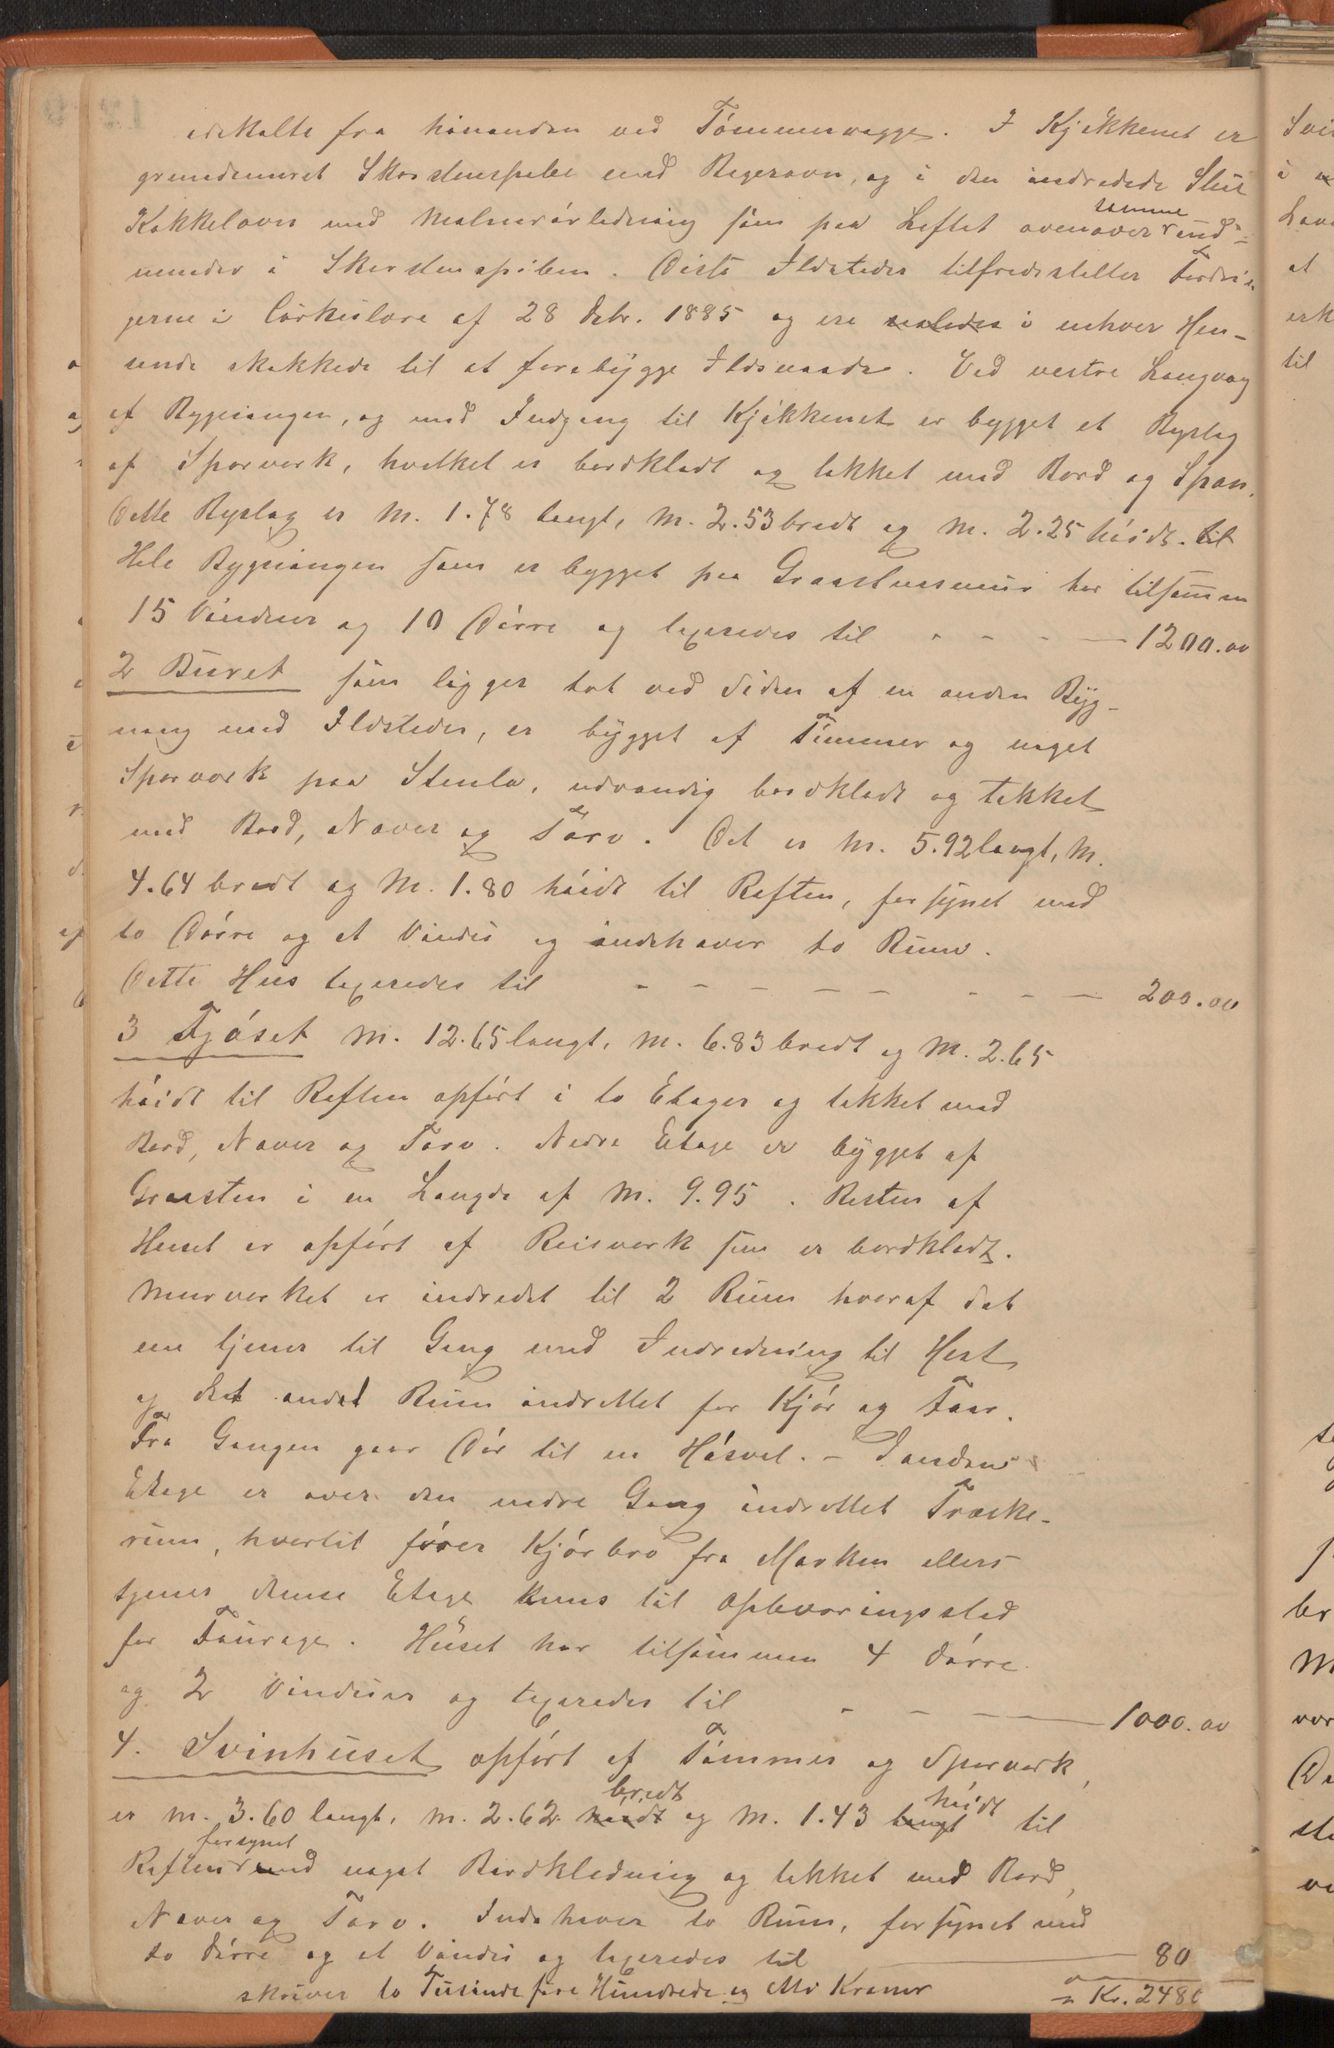 adskalte fra hinanden ved Tømmervægge. I Kjøkkenet er
grundmuret Skorstenspibe med Bagerovn, og i den indredede Stue
Kakkelovn med Malmrørledning som paa Loftet ovenover samme ind-
munder i Skorstenspiben. Disse Ildsteder tilfredsstiller Fordrin-
gerne i Cirkulære af 28 Debr. 1885 og ere saaledes i enhver Hen-
seende skikkede til at forebygge Ildsvaade. Ved vestre Langvæg
af Bygningen, og med Indgang til Kjøkkenet er bygget et Byslag
af Sporværk, hvilket er bordklædt og tækket med Bord og Spon.
Dette Byslag er M. 1.78 langt, M. 2.53 bredt og M. 2.25 høidt. til
Hele Bygningen som er bygget paa Graastensmur har tilsammen
15 Vinduer og 10 Dørre og taxeredes til - - - - 1200.00
2 Buret som ligger tæt ved Siden af en anden Byg-
ning med Ildsteder, er bygget af Tømmer og noget
Sporværk paa Stenla, udvendig bordklædt og tækket
med Bord, Næver og Torv. Det er M. 5.92 langt, M.
4.64 bredt og M. 1.80 høidt til Raften, forsynet med
to Dørre og et Vindu og indehaver to Rum.
Dette Hus taxeredes til - - - - - - - - 200.00
3 Fjøset M. 12.65 langt, M. 6.83 bredt og M. 2.65
høidt til Raften opført i to Etager og tækket med
Bord, Næver og Torv. Nedre Etage er bygget af
Graasten i en Længde af M. 9.95. Resten af
Huset er opført af Reisværk som er bordklædt.
Murværket er indredet til 2 Rum hvoraf det
ene tjener til Gang med Indredning til Hest
og det andet Rum indrettet for Kjør og Faar.
Fra Gangen gaar Dør til en Høsvel. - I anden
Etage er over den nedre Gang indrettet Træske-
rum, hvortil fører Kjørbro fra Marken ellers
tjener denne Etage kuns til Opbevaringssted
for Fourage. Huset har tilsammen 4 Dørre
og 2 Vinduer og taxeredes til - - - 1000.00
4. Svinhuset opført af Tømmer og Sporværk,
er M. 3.60 langt, M. 2.62 høidt bredt og M. 1.43 langt høidt til
Raften forsynet med noget Bordklædning og tækket med Bord,
Næver og Torv. Indehaver to Rum, forsynet med
to Dørre og et Vindu og taxeredes til 80
skriver to Tusinde fire Hundrede og Otti Kroner Kr. 2480